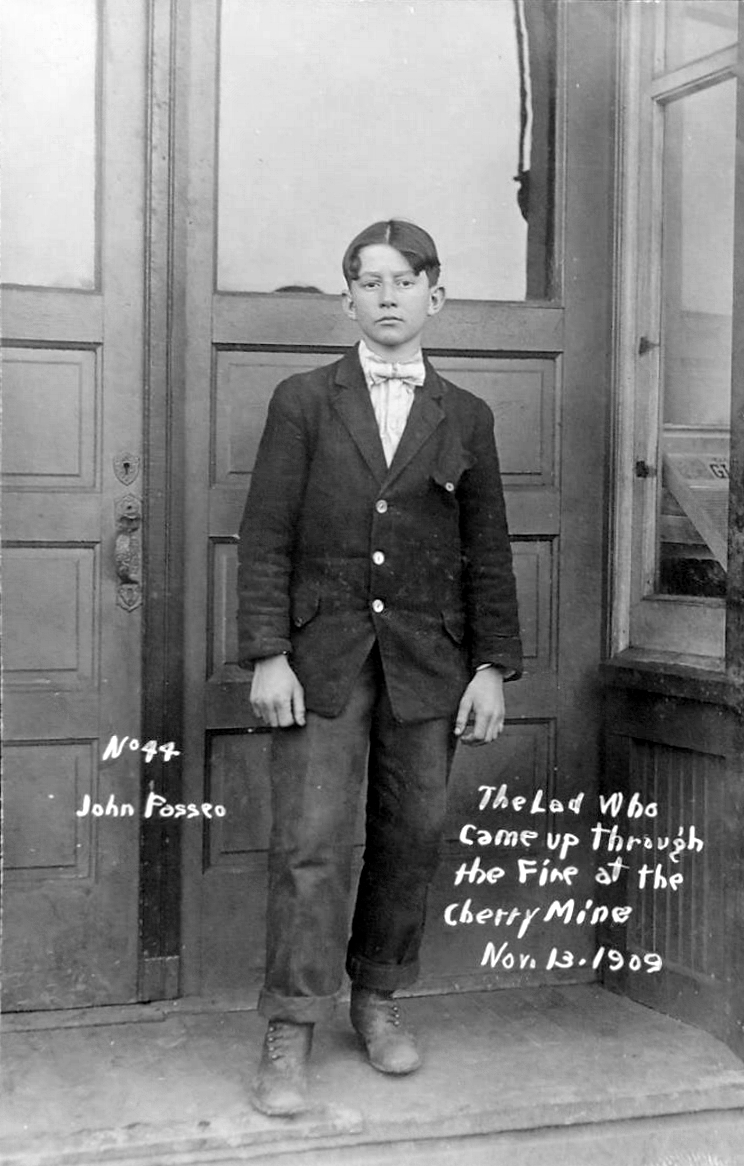 No 44
John Posseo
The Lad Who
Came up through
the Fire at the
Cherry Mine
Nov. 13. 1909